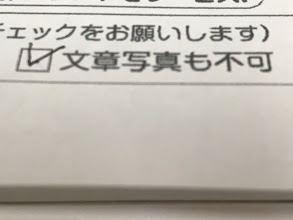 チェックをお願いします)
☑文章写真も不可